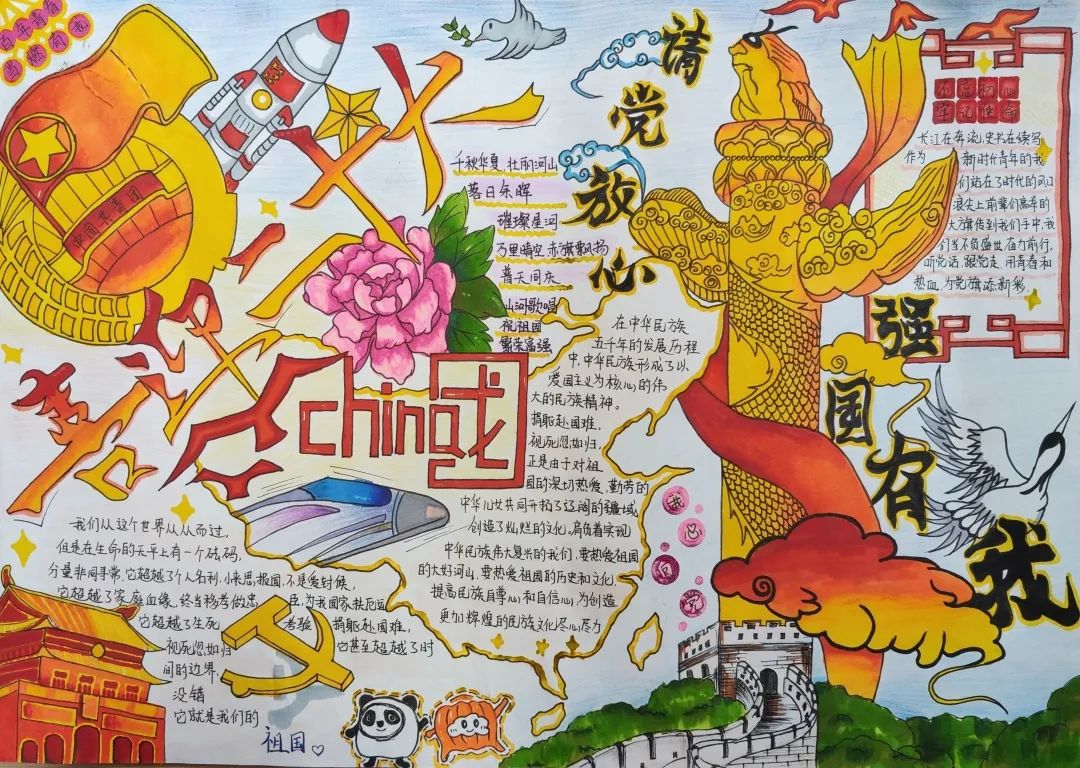 百年青春
当燃有我
中国共青团
请党放心
千秋华夏，壮丽河山
落日余晖
璀璨星河
万里晴空，赤旗飘扬
普天同庆
山河歌唱
祝祖国
繁荣富强
不忘初心
牢记使命
长江在奔流，史书在续写
作为新时代青年的我
们站在了时代的风口
浪尖上前辈们高举的
大旗传到我们手中，我
们当不负盛世，奋力前行，
听党话，跟党走，用青春和
热血，为党旗添新彩。
强国有我
在中华民族
五千年的发展历程
中，中华民族形成了以
爱国主义为核心的伟
大的民族精神。
捐躯赴国难，
视死忽如归，
正是由于对祖
国的深切热爱，勤劳的
中华儿女共同开拓了辽阔的疆域，
创造了灿烂的文化。肩负着实现
中华民族伟大复兴的我们，要热爱祖国
的大好河山，要热爱祖国的历史和文化，
提高民族自尊心和自信心，为创造
更加辉煌的民族文化尽心尽力
china
我心向党
我们从这个世界从从而过，
但是在生命的天平上有一个砝码，
分量非同寻常，它超越了个人名利，小来思报国，不是爱封侯，
它超越了家庭血缘，终当移孝做忠臣，为我国家扶厄运
它超越了生死考验，捐躯赴国难，
视死忽如归，它甚至超越了时
间的边界，
没错
它就是我们的
祖国